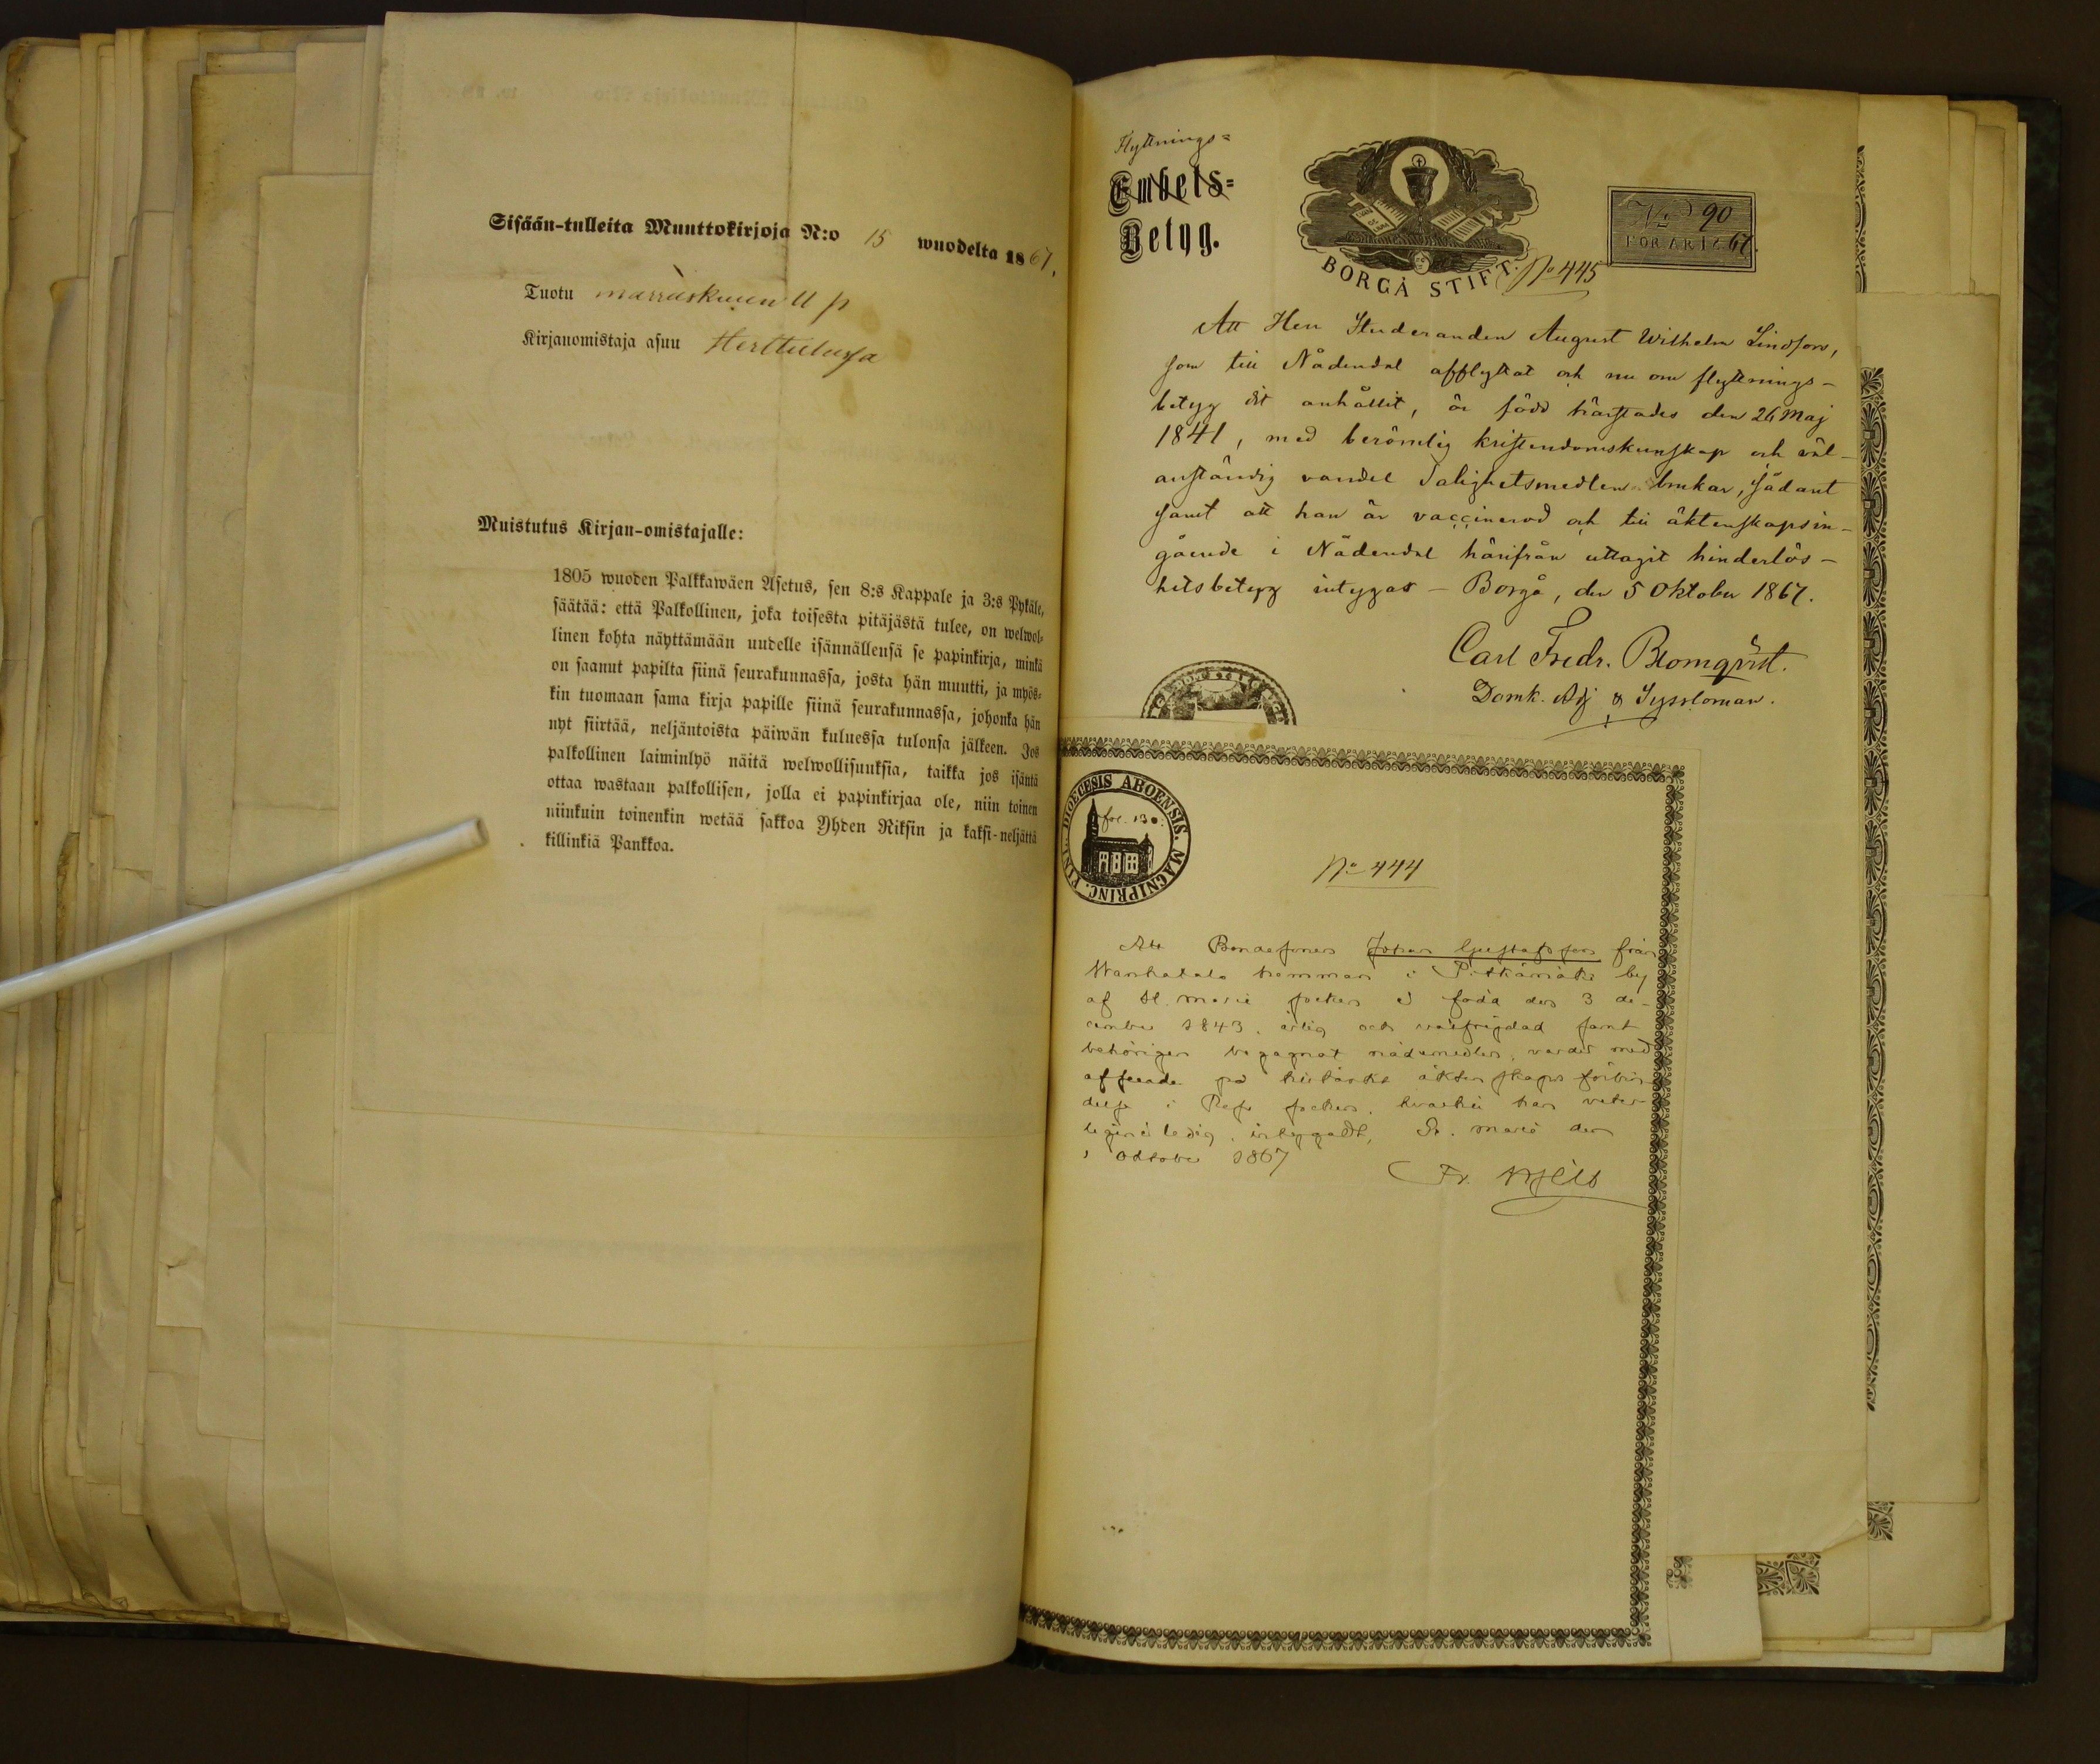 Sisään-tulleita Muuttokirjoja N:o 15 wuodelta 1867.
Tuotu marraskuun 11 p
Kirjanomistaja asuu Herttulassa
Muistutus Kirjan-omistajalle:
1805 wuoden Palkkawäen Asetus, sen 8:s Kappale ja 3:s Pykäle,
säätää: että Palkollinen, joka toisesta pitäjästä tulee, on welwol-
linen kohta näyttämään uudelle isännällensä se papinkirja, minkä
on saanut papilta siinä seurakunnassa, josta hän muutti, ja myös-
kin tuomaan sama kirja papille siinä seurakunnassa, johonka hän
nyt siirtää, neljäntoista päiwän kuluessa tulonsa jälkeen. Jos
palkollinen laiminlyö näitä welwollisuuksia, taikka jos isäntä
ottaa wastaan palkollisen, jolla ei papinkirjaa ole, niin toinen
niinkuin toinenkin wetää sakkoa Yhden Riksin ja kaksi-neljättä
killinkiä Pankkoa.
Flyttnings=
Embets=
Betyg.
BORGÅ STIFT.
No 445
No 90
FÖR ÅR 1867.
Att Herr Studeranden August Wilhelm Lindfors,
som till Nådendal afflyttat och nu om flyttnings-
betyg dit anhållit, är född härstädes den 26 Maj
1841, med berömlig kristendomskunskap och väl-
anständig vandel Salighetsmedlen brukar, sådant
samt att han är vaccinerad och till äktenskapsin-
gående i Nådendal härifrån uttagit hinderlös-
hetsbetyg intygas - Borgå, den 5 Oktober 1867.
Carl Fredr. Blomqvist.
Domk. Adj & Syssloman.
DIOECESIS ABOENSIS. MAGNI PRINC. FINL.
fol. 130.
No 444
Att Bondesonen Johan Gustafsson från
hemman i Pitkämäki by
af St. Marie socken är född den 3 de-
cember 1843, ärlig och välfrejdad samt
behörigen begagnat nådemedlen, varder med
afseende på äktenskaps förbin-
delse i socken, han veter-
ledig, St. Marie den
1 October 1867
Fr.